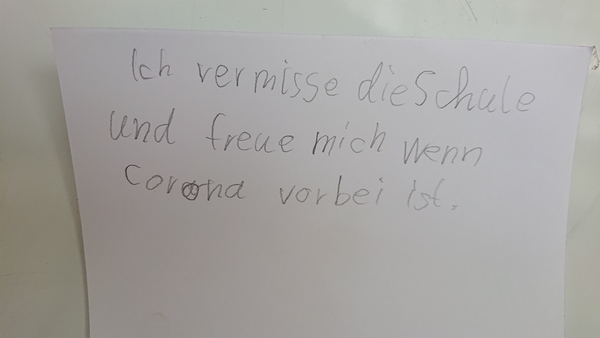 Ich vermisse die Schule
und freue mich wenn
Corona vorbei ist.